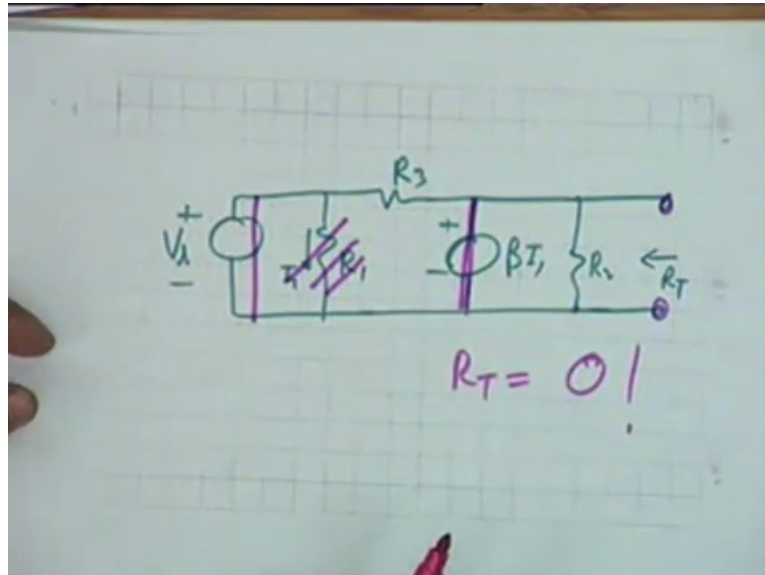 R3
+
Vi
−
I1
R1
+
−
βI1
R2
←
RT
RT = 0!